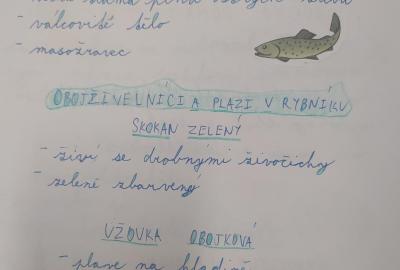 - válcovité tělo
- masožravec
OBOJŽIVELNÍCI A PLAZI V RYBNÍKU
SKOKAN ZELENÝ
- živí se drobnými živočichy
- zeleně zbarvený
UŽOVKA OBOJKOVÁ
- plave na hladině